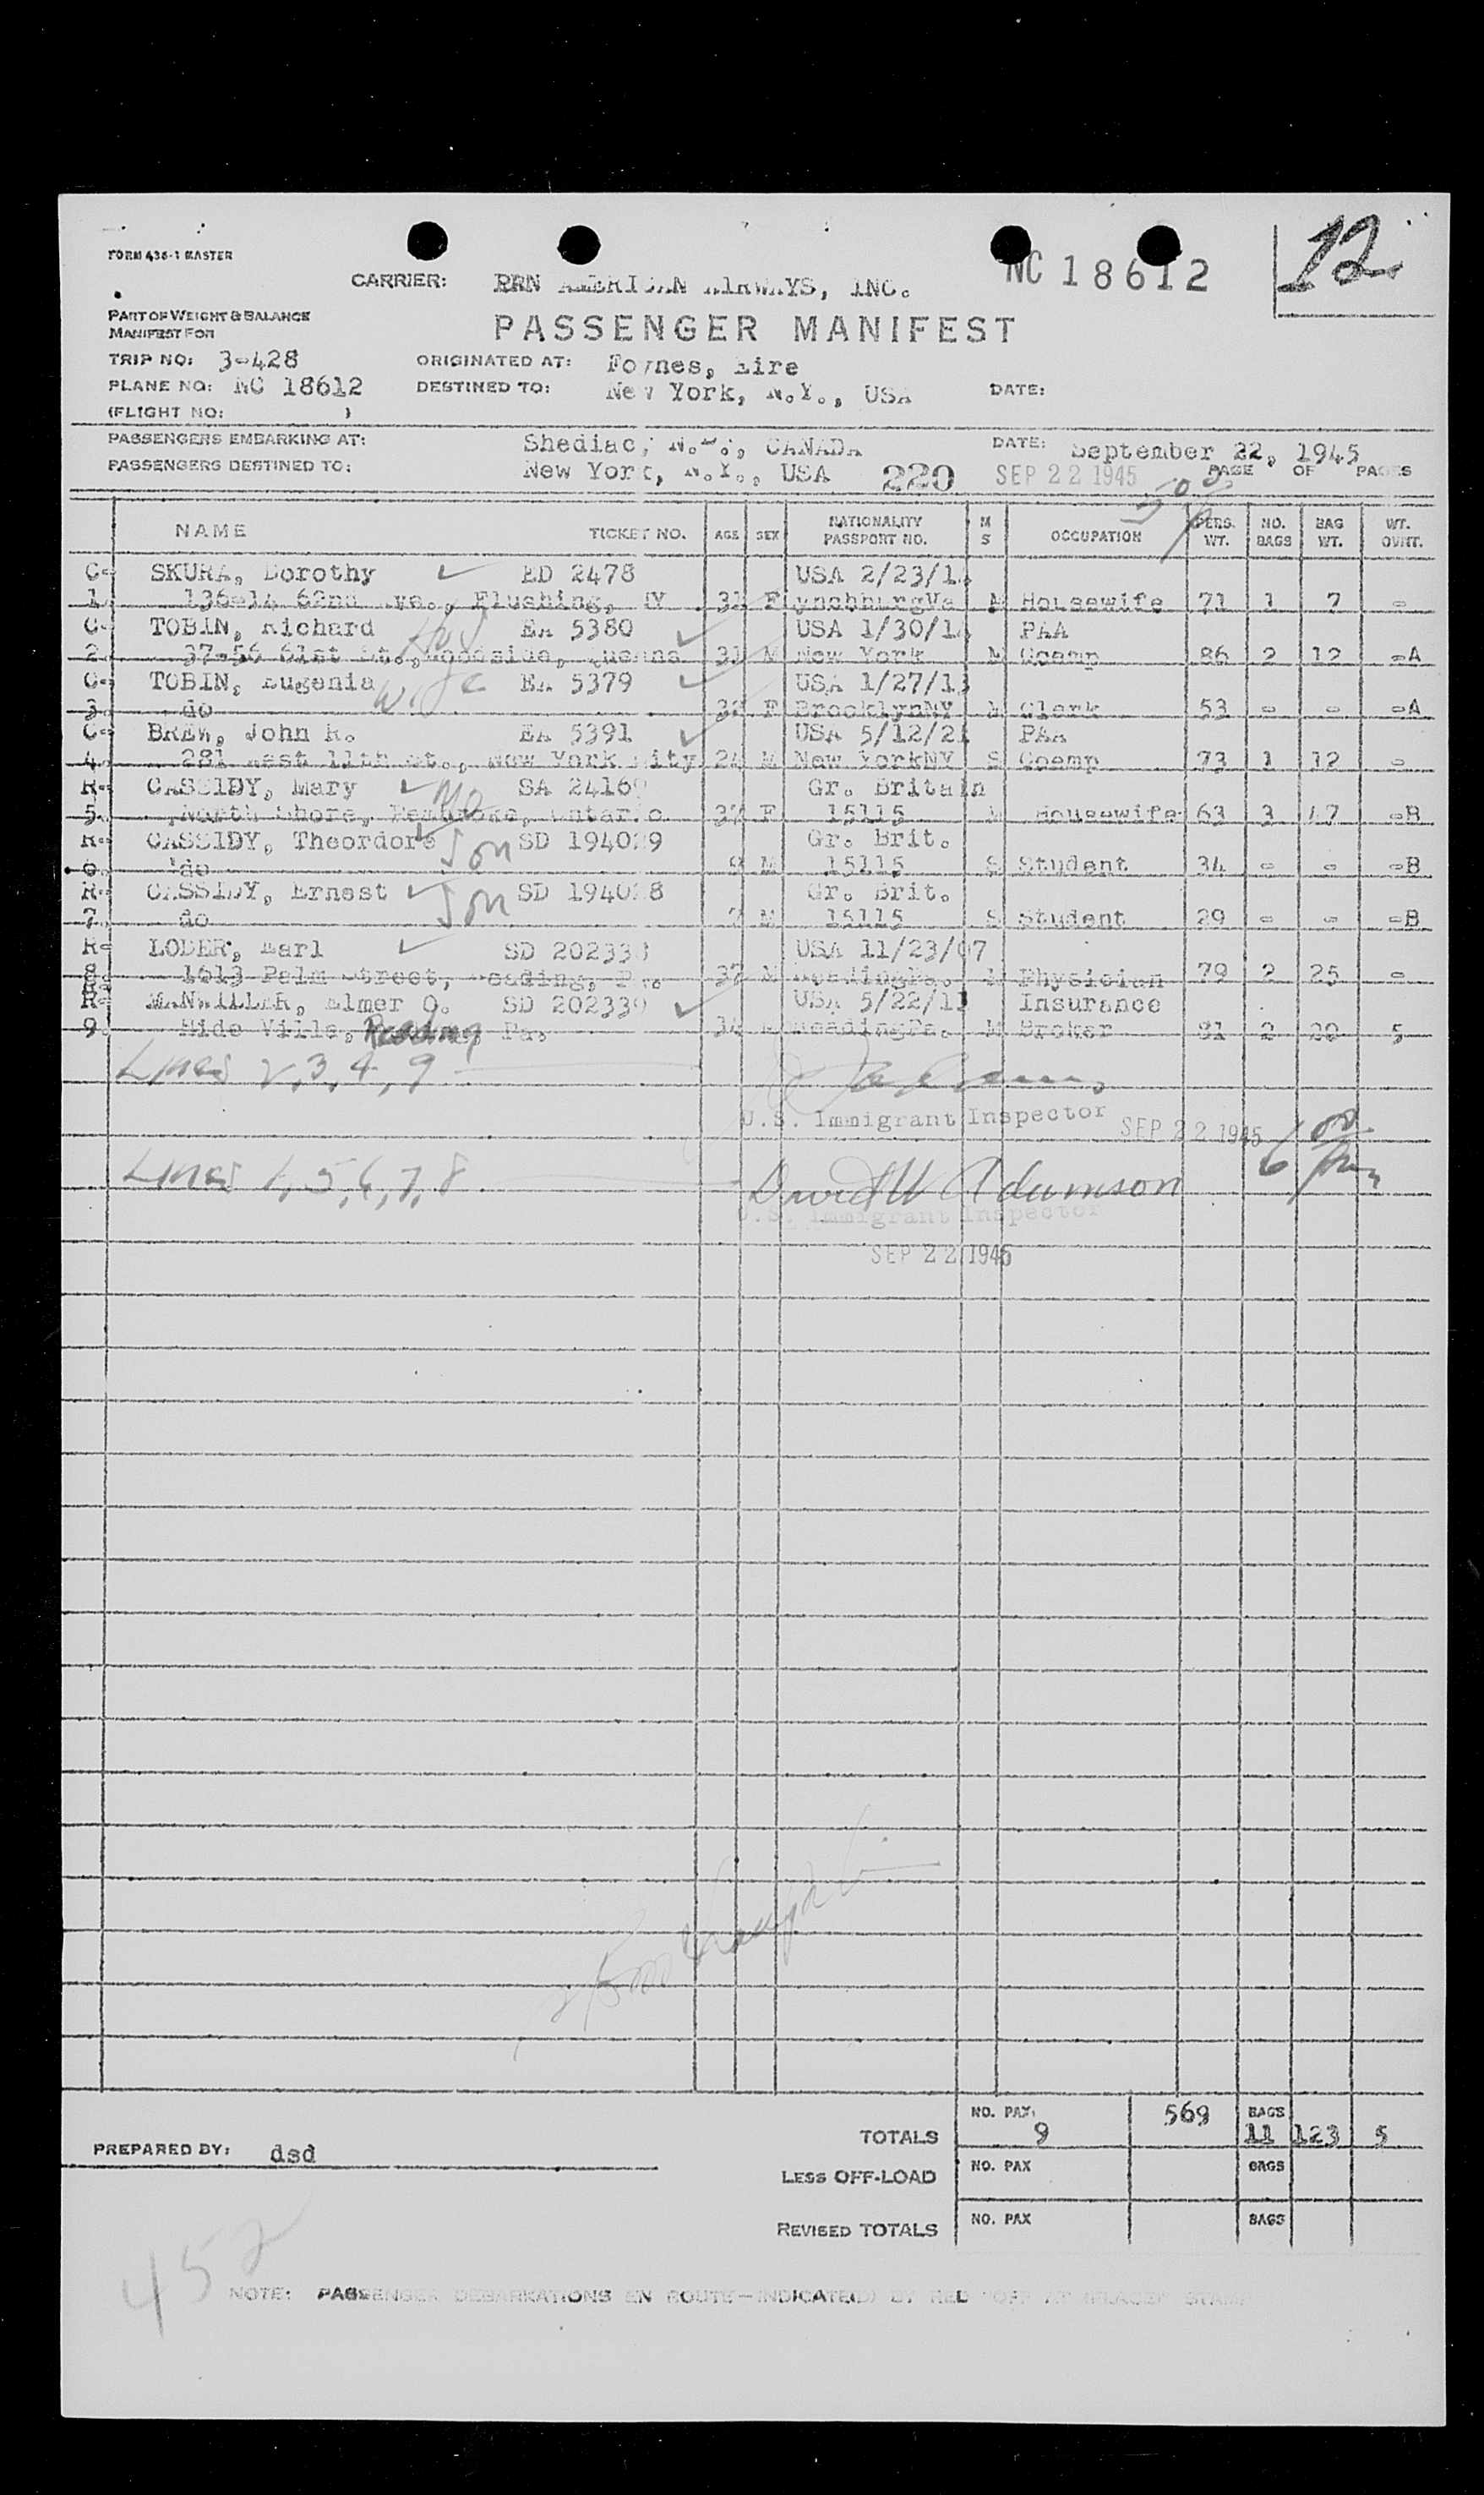 FORM 436-1 MASTER
12
NC 18612
CARRIER: PAN AMERICAN AIRWAYS, INC.
PART OF WEIGHT & BALANCE
MANIFEST FOR
PASSENGER MANIFEST
TRIP NO: 3-428 ORIGINATED AT: Foynes, Eire
PLANE NO: NC 18612 DESTINED TO: New York, N.Y., USA DATE:
(FLIGHT NO: )
PASSENGERS EMBARKING AT: Shediac, N.B., CANADA DATE: September 22, 1945
PASSENGERS DESTINED TO: New York, N.Y., USA 220 SEP 22 1945 PAGE OF PAGES
NAME TICKET NO. AGE SEX NATIONALITY PASSPORT NO. M S OCCUPATION PERS. WT. NO. BAGS BAG WT. WT. OVHT.
C- SKURA, Dorothy ED 2478 USA 2/23/14
1. 136-14 62nd Ave., Flushing, NY 31 F LynchburgVa M Housewife 71 1 7 -
C- TOBIN, Richard EA 5380 USA 1/30/14 PAA
2. 37-56 61st St., Woodside, Queens 31 M New York M Coemp 86 2 12 -A
C- TOBIN, Eugenia wife EA 5379 USA 1/27/13
3. do 32 F BrooklynNY M Clerk 53 - - -A
C- BREW, John R. EA 5391 USA 5/12/21 PAA
4. 281 East 11th St., New York City 24 M New YorkNY S Coemp 73 1 12 -
R- CASSIDY, Mary SA 24169 Gr. Britain
5. North Shore, Pembroke, Ontario 37 F 15115 M Housewife 63 3 47 -B
R- CASSIDY, Theordore son SD 194029 Gr. Brit.
6. do 9 M 15115 S Student 34 - - -B
R- CASSIDY, Ernest son SD 194028 Gr. Brit.
7. do 7 M 15115 S Student 29 - - -B
R- LODER, Earl SD 202338 USA 11/23/07
8. 1613 Palm Street, Reading, Pa. 37 M ReadingPa. M Physician 79 2 25 -
R- MANWILLER, Elmer O. SD 202339 USA 5/22/11 Insurance
9. Hide Ville, Reading Pa. 34 M ReadingPa. M Broker 81 2 20 5
Lines 2, 3, 4, 9
U.S. Immigrant Inspector SEP 22 1945
Lines 1, 5, 6, 7, 8 David W Adamson
U.S. Immigrant Inspector
SEP 22 1945
NO. PAX 569 BAGS
TOTALS 9 11 123 5
PREPARED BY: dsd
LESS OFF-LOAD NO. PAX BAGS
REVISED TOTALS NO. PAX BAGS
452
NOTE: PASSENGER DEBARKATIONS EN ROUTE—INDICATED BY RED "OFF AT (PLACE)" STAMP